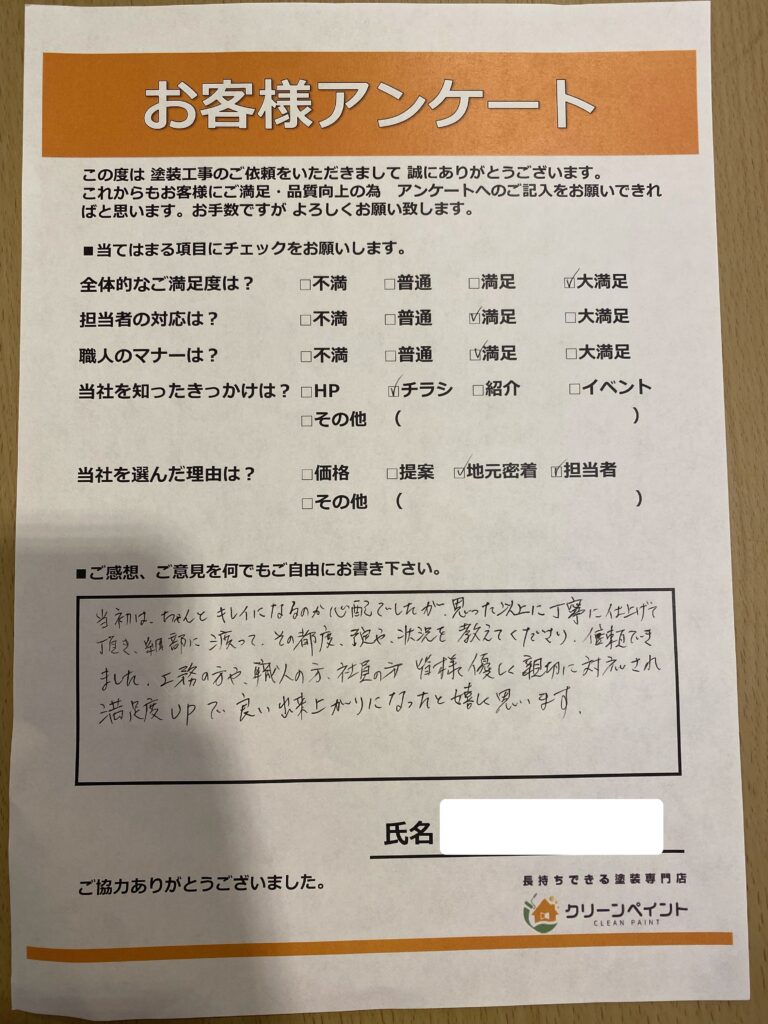 お客様アンケート
この度は 塗装工事のご依頼をいただきまして 誠にありがとうございます。
これからもお客様にご満足・品質向上の為　アンケートへのご記入をお願いできれ
ばと思います。お手数ですが よろしくお願い致します。
■当てはまる項目にチェックをお願いします。
全体的なご満足度は？ □不満 □普通 □満足 ☑大満足
担当者の対応は？ □不満 □普通 ☑満足 □大満足
職人のマナーは？ □不満 □普通 ☑満足 □大満足
当社を知ったきっかけは？ □HP ☑チラシ □紹介 □イベント
□その他 （ ）
当社を選んだ理由は？ □価格 □提案 ☑地元密着 ☑担当者
□その他 （ ）
■ご感想、ご意見を何でもご自由にお書き下さい。
当初は、ちゃんと キレイになるのか心配でしたが、思った以上に丁寧に仕上げて
頂き、細部に渡って、その都度、状況を教えてくださり、信頼でき
ました。工務の方や、職人の方、社員の方 皆様優しく親切に対応され
満足度UPで良い出来上がりになったと嬉しく思います。
氏名
ご協力ありがとうございました。
長持ちできる塗装専門店
クリーンペイント
CLEAN PAINT